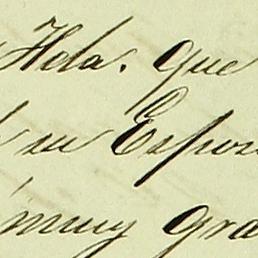 Hda. que
su Espos
muy gra